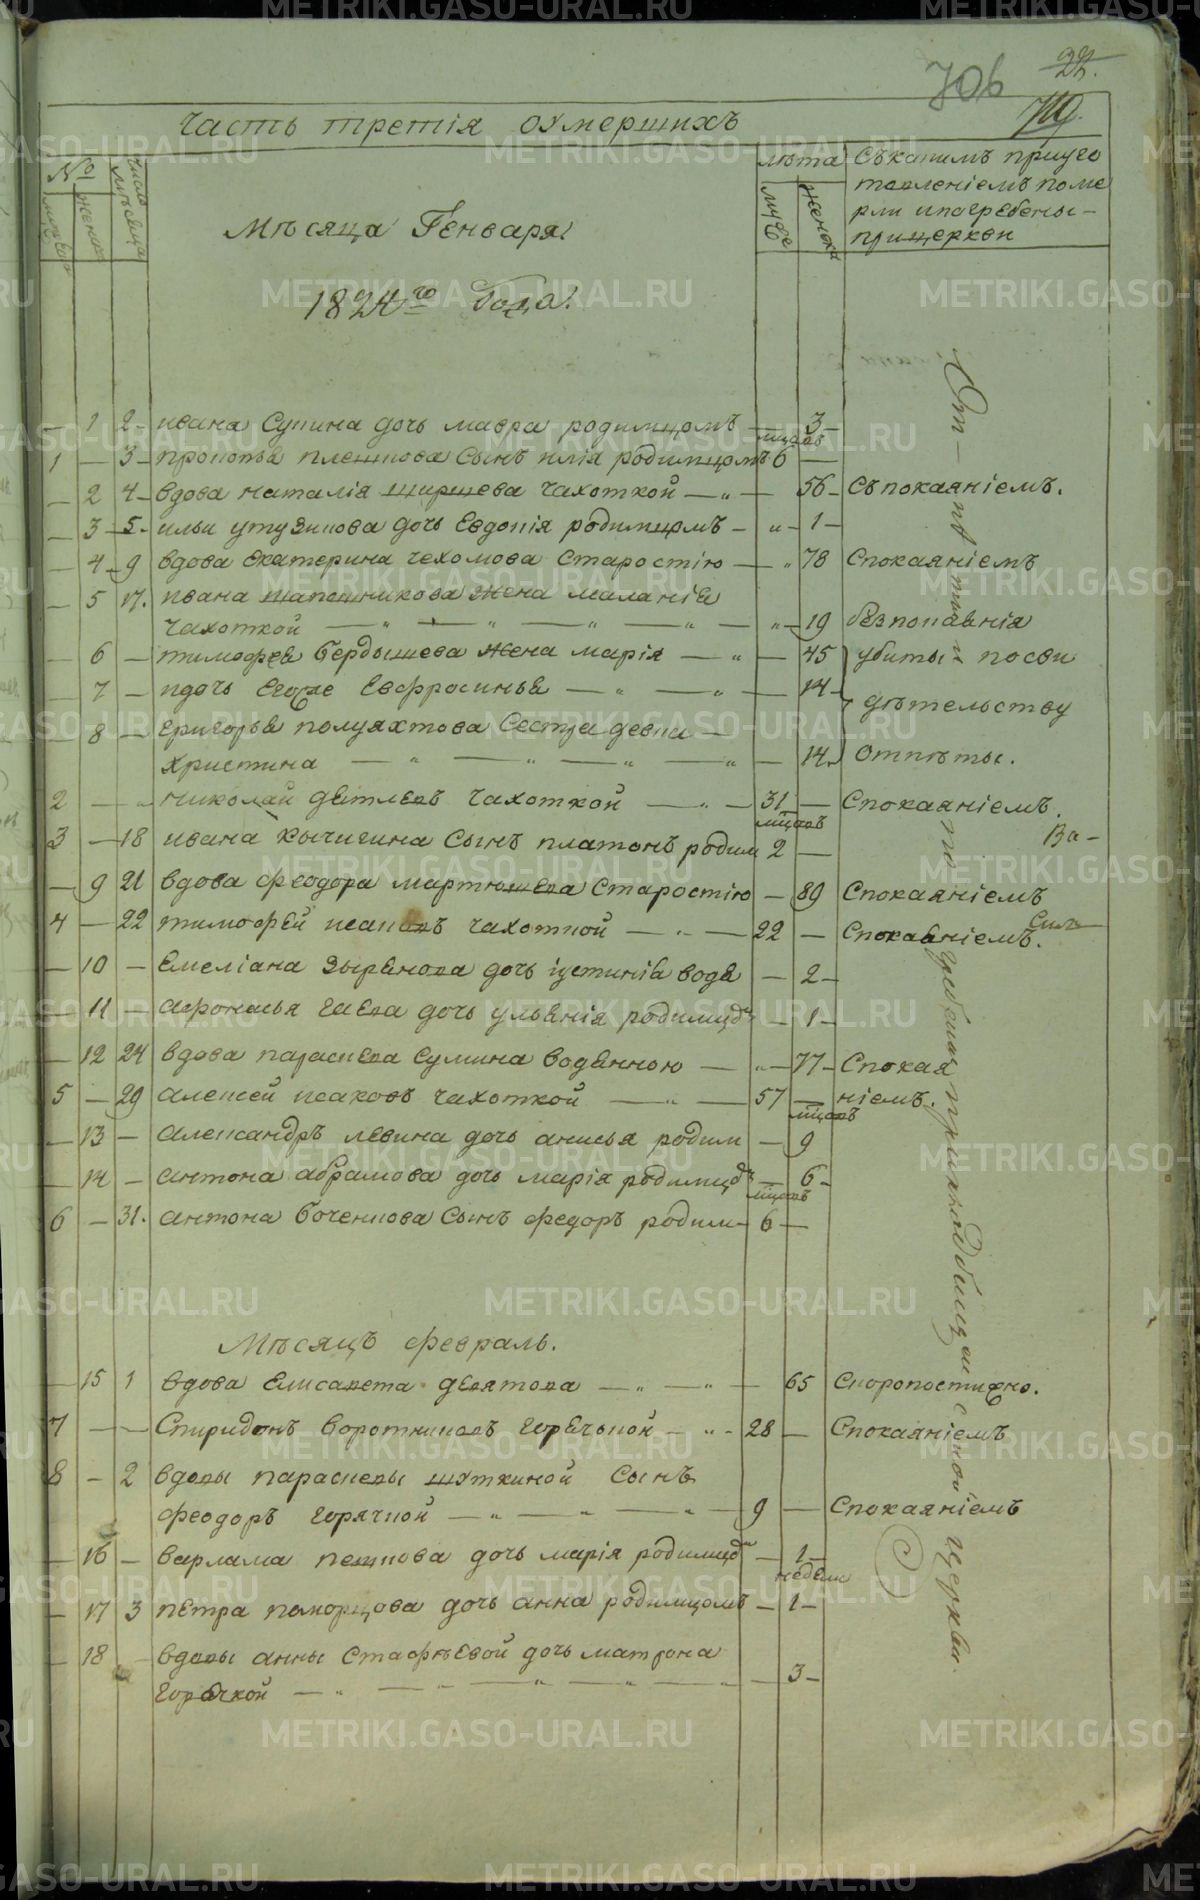 706
22.
Часть третія оумершихъ
№
число мѣсяца
женска
Мѣсяца Генваря
1824го года
лѣта
женска
Съкакимъ приуго
товленіемъ поме
рли ипогребены
прицеркви
1 2 ивана Сутина дочь мавра родимцомъ 3
мцовъ
1 3 прокопья плешкова Сынъ илія родимцомъ 6
2 4 вдова наталія чахоткой 56 Съ покаяніемъ.
3 5 ильи дочь Евдокія родимцомъ 1
4 9 вдова Екатерина чехомова Старостію 78 Спокаяніемъ
5 17. ивана шапошникова жена маланія
чахоткой 19 безпокаянія
6 тимофея бердышева жена марія 45 убиты посви
7 идочь Евфросинья 14 дѣтельству
8 григорья полуяхтова Сестра девка
христина 14 Отпѣты.
2 николай дѣтлевъ чахоткой 31 Спокаяніемъ.
мцовъ
3 18 ивана кычигина Сынъ платонъ родим 2
Ва-
9 21 вдова феодора мартюшева Старостію 89 Спокаяніемъ
4 22 тимофей исаковъ чахоткой 22 Спокаяніемъ.
10 Емеліана Зырянова дочь іустинія водя 2
11 афонасья дочь ульянія родимцо 1
12 24 вдова параскева Сумина водяною 77 Спокая
5 29 алексей исаковъ чахоткой 57 ніемъ.
мцовъ
13 александръ левина дочь анисья родим 9
14 антона абрамова дочь марія родимцо 6
мцовъ
6 31. антона боченкова Сынъ федоръ родим 6
Мѣсяцъ февраль.
15 1 вдова Елисавета девятова 65 Скоропостижно.
7 Спиридонъ воротниковъ горячкой 28 Спокаяніемъ
8 2 вдовы параскевы шуткиной Сынъ
феодоръ горячкой 9 Спокаяніемъ
16 варлама пешкова дочь марія родимцо 1
недели
17 3 петра поморцова дочь анна родимцомъ 1
18 вдовы анны Стафѣевой дочь матрона
горячкой 3
церкви.
METRIKI.GASO-URAL.RU